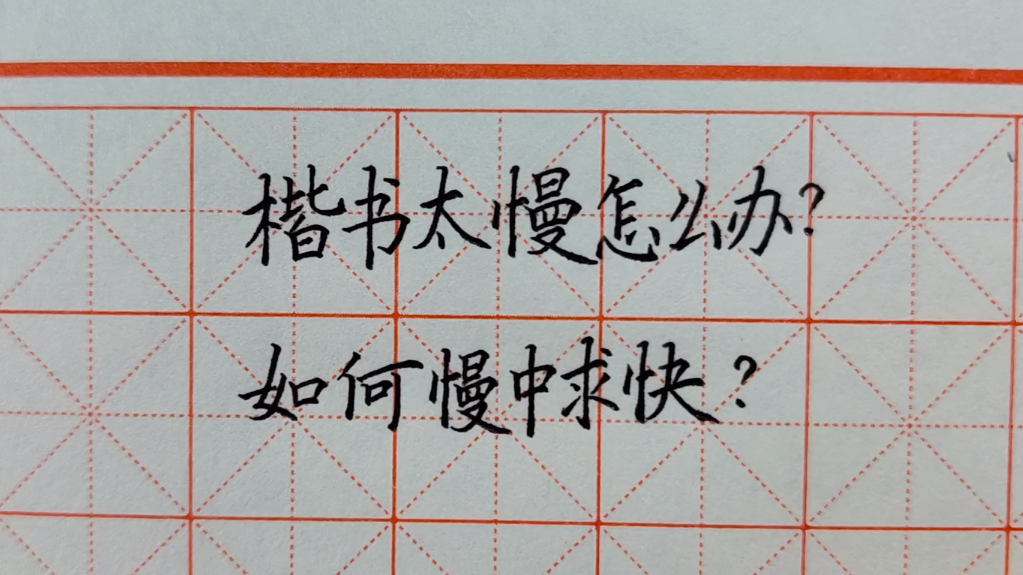 楷书太慢怎么办?
如何慢中求快?